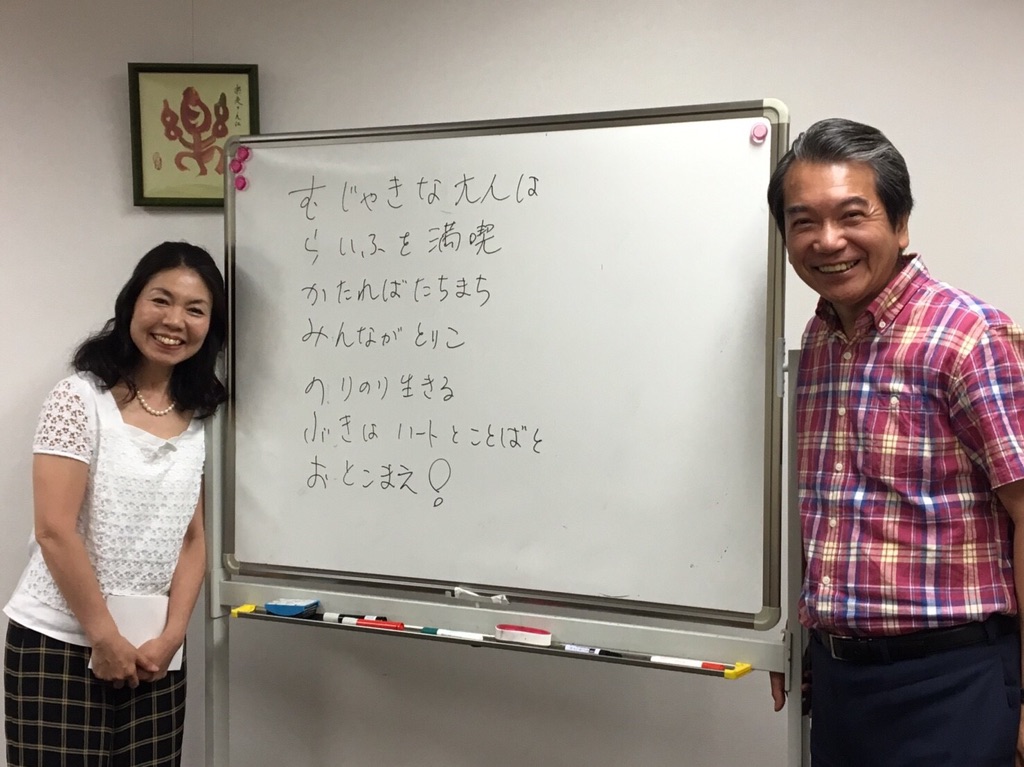 樂
むじゃきな大人は
らいふを満喫
かたればたちまち
みんながとりこ
のりのり生きる
ぶきはハートとことばと
おとこまえ!